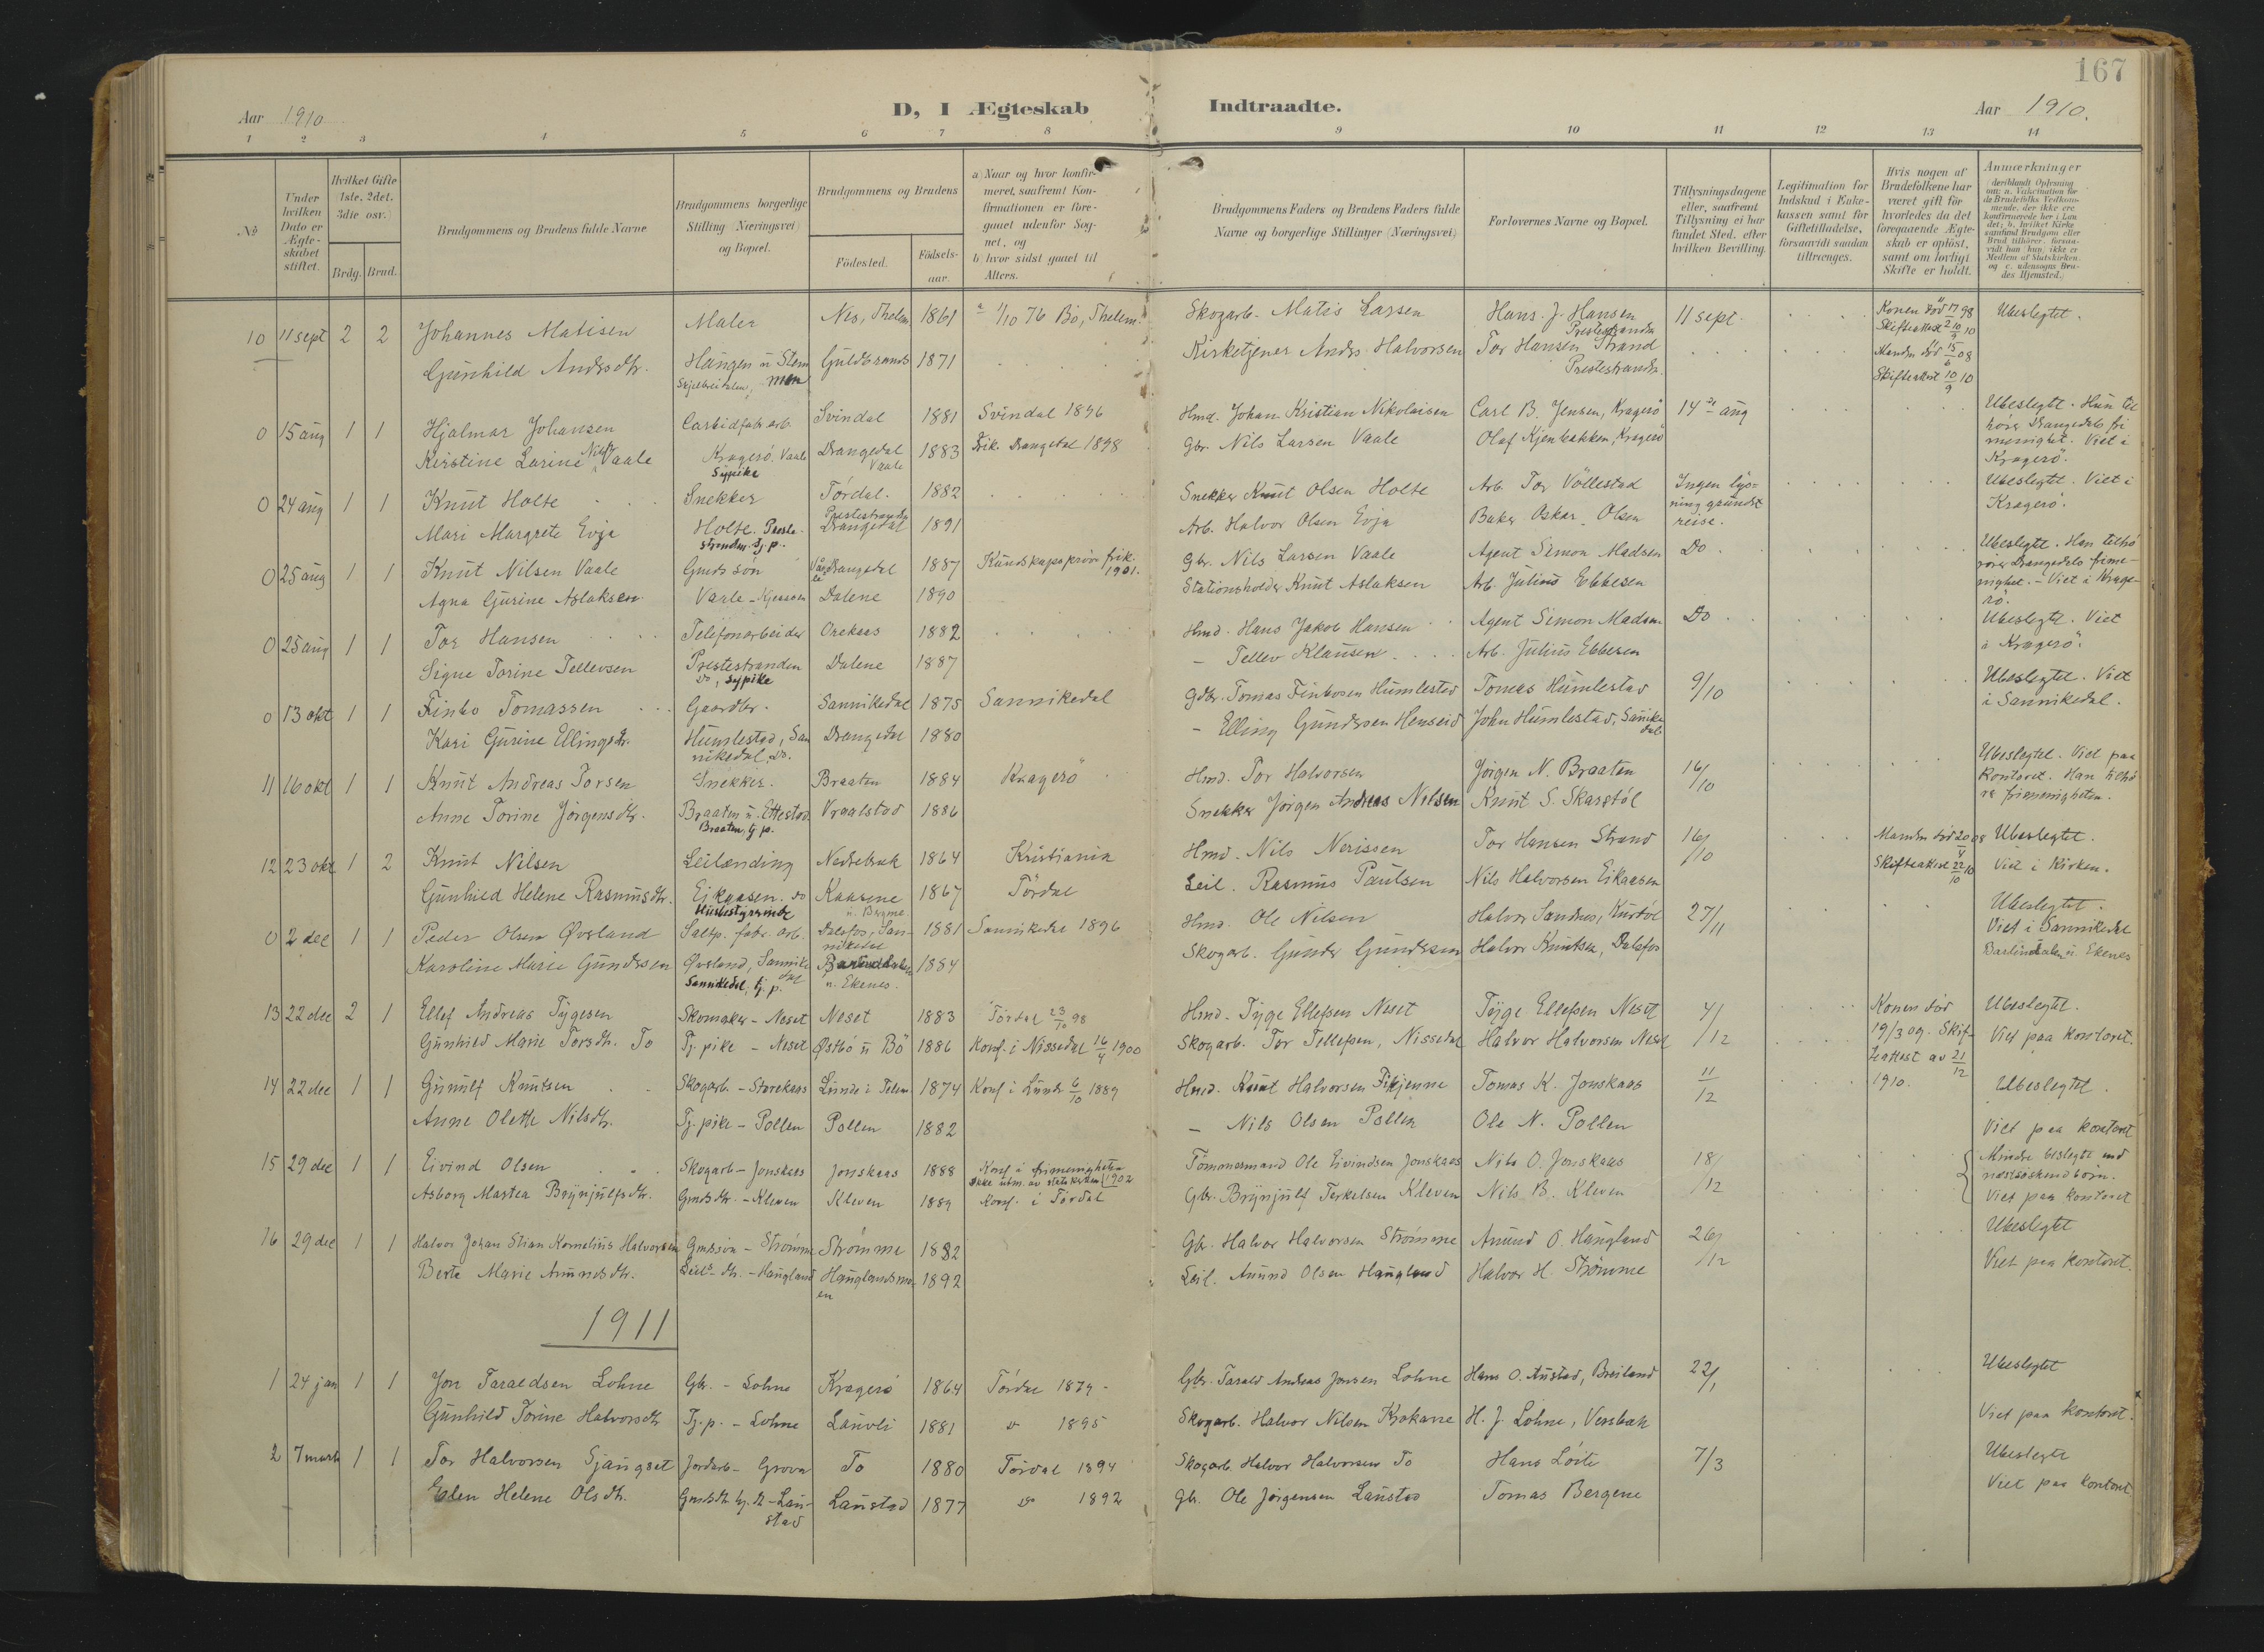 167
Aar 1910
D, I Ægteskab Indtraadte.
Aar 1910.
1 2 3 4 5 6 7 8 9 10 11 12 13 14
№
Under hvilken Dato er Ægteskabet stiftet.
Hvilket Gifte (1ste, 2det, 3die osv.)
Brdg. Brud.
Brudgommens og Brudens fulde Navne
Brudgommens borgerlige Stilling (Næringsvei) og Bopæl.
Brudgommens og Brudens
Fødested.
Fødselsaar.
a) Naar og hvor konfirmeret, saafremt Konfirmationen er foregaaet udenfor Sognet, og
b) hvor sidst gaaet til Alters.
Brudgommens Faders og Brudens Faders fulde Navne og borgerlige Stillinger (Næringsvei)
Forlovernes Navne og Bopæl.
Tillysningsdagene eller, saafremt Tillysning ei har fundet Sted, efter hvilken Bevilling.
Legitimation for Indskud i Enkekassen samt for Giftetilladelse, forsaavidt saadan tiltrænges.
Hvis nogen af Brudefolkene har været gift før hvorledes da det foregaaende Ægteskab er opløst, samt om lovligt Skifte er holdt.
Anmærkninger
10 11 sept 2 2 Johannes Matisen Maler Nes, Thelem 1861 a 1/10 76 Bø, Thelem. Skogarb. Matis Larsen Hans. J. Hansen Prestestranden 11 sept. Konen død 17/2 98 Skifteattest 10/9 10 Ubeslegtet.
Gunhild Andersdtr. Haugen u Stemmen Guldbrands 1871 Kirketjener Anders Halvorsen Tor Hansen Strand Prestestranden. Manden død 15/6 08 Skifteattest 10/9 10
0 15 aug 1 1 Hjalmar Johansen Carbidfabr arb. Svindal 1881 Svindal 1896 Hmd. Johan Kristian Nikolaisen Carl B. Jensen, Kragerø 14 aug Ubeslegtt. Hun tilhører Drangedals frimenighet. Viet i Kragerø.
Kirstine Larine Nilsdtr Vaale Kragerø. Vaale Sypike Drangedal Vaale 1883 Frik. Drangedal 1898 Gbr. Nils Larsen Vaale Olaf Kjenbakken, Kragerø
0 24 aug 1 1 Knut Holte Snekker Tørdal. 1882 Snekker Knut Olsen Holte Arb. Tor Vøllestad Ingen lysning grundet reise. Ubeslegtt. Viet i Kragerø.
Mari Margrete Evja Holte. Prestestranden. tj. p. Prestestranden Drangedal 1891 Arb. Halvor Olsen Evja Baker Oskar Olsen
0 25 aug 1 1 Knut Nilsen Vaale Gmds søn Vaale Drangedal 1887 Kundskapsprøve frik. 1901. Gbr. Nils Larsen Vaale Agent Simon Madsen Do. Ubeslegtt. Han tilhører Drangedals frimenighet. - Viet i Kragerø.
Agna Gurine Aslaksen Vaale - Kjeaasen Dalene 1890 Stationsholder Knut Aslaksen Arb. Julius Ebbesen
0 25 aug 1 1 Tor Hansen Telefonarbeider Orekaas 1882 Hmd. Hans Jakob Hansen Agent Simon Madsen Do Ubeslegtt. Viet i Kragerø.
Signe Torine Tellevsen Prestestranden Do, sypike Dalene 1887 - Tellev Klausen Arb. Julius Ebbesen
0 13 okt 1 1 Finbo Tomassen Gaardbr. Sannikedal 1875 Sannikedal Gdbr. Tomas Finbosen Humlestad Tomas Humlestad 9/10 Ubeslegtt. Viet i Sannikedal.
Kari Gurine Ellingsdtr. Humlestad, Sannikedal. Do. Drangedal 1880 - Elling Gundersen Henseid John Humlestad, Sanikedal
11 16 okt 1 1 Knut Andreas Torsen Snekker. Braaten 1884 Kragerø Hmd. Tor Halvorsen Jørgen N. Braaten 16/10 Ubeslegtet. Viet paa kontoret. Han tilhører frimenigheten.
Anne Torine Jørgensdtr. Braaten u. Ettestad. Braaten, tj. p. Vraalstad 1886 Snekker Jørgen Andreas Nilsen Knut S. Skarstøl
12 23 okt 1 2 Knut Nilsen Leilænding Nedrebøk 1864 Kristiania Hmd. Nils Nerissen Tor Hansen Strand 16/10 Manden død 20/4 08 Skifteattest 22/10 10 Ubeslegtet. Viet i Kirken.
Gunhild Helene Rasmusdtr. Eikaasen. do Husbestyrerinde Kaasene 1867 Tørdal Leil. Rasmus Paulsen Nils Halvorsen Eikaasen
0 2 dec 1 1 Peder Olsen Øvsland Saltp. fabr. arb. Dalsfos, Sannikedal 1881 Sannikedal 1896 Hmd. Ole Nilsen Halvor Sandnes, Kurtøl 27/11 Ubeslegtet. Viet i Sannikedal
Karoline Marie Gundersen Øvsland, Sannikedal Sannikedal, tj. p. Barlinddalen u. Ekenes. 1884 Skogarb. Gunder Gundersen Halvor Knutsen, Dalsfos Barlinddalen u. Ekenes
13 22 dec 2 1 Ellef Andreas Tygesen Skomaker - Neset Neset 1883 Tørdal 23/10 98 Hmd. Tyge Ellefsen Neset Tyge Ellefsen Neset 4/12 Konen død 19/3 09. Skifteattest av 21/12 1910. Ubeslegtet. Viet paa kontoret.
Gunhild Marie Torsdtr. To Tj. pike - Neset Østbø u Bø 1886 Konf. i Nissedal 16/4 1900 Skogarb. Tor Tellefsen, Nissedal Halvor Halvorsen Neset
14 22 dec 1 1 Gunulf Knutsen Skogarb - Storekaas Lunde i Telem 1874 Konf i Lunde 6/10 1889 Hmd. Knut Halvorsen Fikjenne Tomas K. Jonskaas 11/12 Ubeslegtet.
Anne Olette Nilsdtr. Tj. pike - Pollen Pollen 1882 - Nils Olsen Pollen Ole N. Pollen Viet paa kontoret
15 29 dec 1 1 Eivind Olsen Skogarb - Jonskaas Jonskaas 1888 Konf i frimenigheten Ikke utm. av statskirken 1902 Tømmermand Ole Eivindsen Jonskaas Nils O. Jonskaas 18/12 Mindre beslegtt end næstsøskendbørn. Viet paa kontoret
Asborg Martea Brynjulfsdtr. Gmdsdtr. - Kleven Kleven 1889 Konf. i Tørdal Gbr. Brynjulf Terkelsen Kleven Nils B. Kleven
16 29 dec 1 1 Halvor Johan Stian Kornelius Halvorsen Gmdssøn - Strømme Strømme 1882 Gbr. Halvor Halvorsen Strømme Anund O. Haugland 26/12 Ubeslegtet
Berte Marie Anundsdtr. Leils- dtr. - Haugland Hauglandsmoen 1892 Leil. Anund Olsen Haugland Halvor H. Strømme Viet paa kontoret.
1911
1 24 jan 1 1 Jon Taraldsen Lohne Gbr. - Lohne Kragerø 1864 Tørdal 1879 - Gbr. Tarald Andreas Jonsen Lohne Hans O. Austad, Breiland 22/1 Ubeslegtet
Gunhild Torine Halvorsdtr Tj. p. - Lohne Lauvli 1881 do 1895 Skogarb. Halvor Nilsen Krokane H. J. Lohne, Versbak Viet paa kontoret.
2 7 marts 1 1 Tor Halvorsen Gjaugset Jordarb - Grova To 1880 Tørdal 1894 Skogarb. Halvor Halvorsen To Hans Løite 7/3 Ubeslegtt
Elen Helene Olsdtr. Laustad Laustad 1877 do 1892 Gbr. Ole Jørgensen Laustad Tomas Bergene Viet paa kontoret.